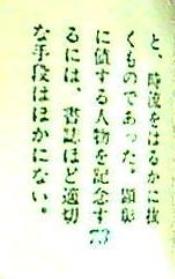 と、時流をはるかに抜
くものであった。顕彰
に値する人物を記念す
るには、書誌ほど適切
な手段はほかにない。